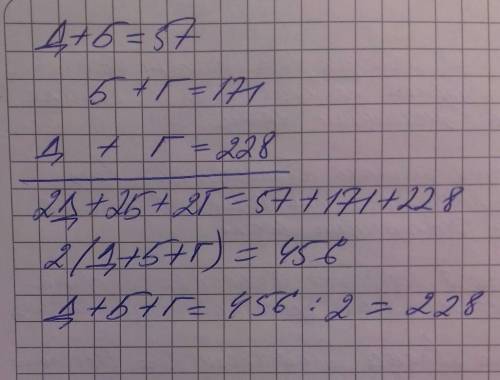 Д+Б=57
Б+Г=171
Д + Г=228
2Д+2Б+2Г=57+171+228
2(Д+Б+Г)=456
Д+Б+Г=456:2=228